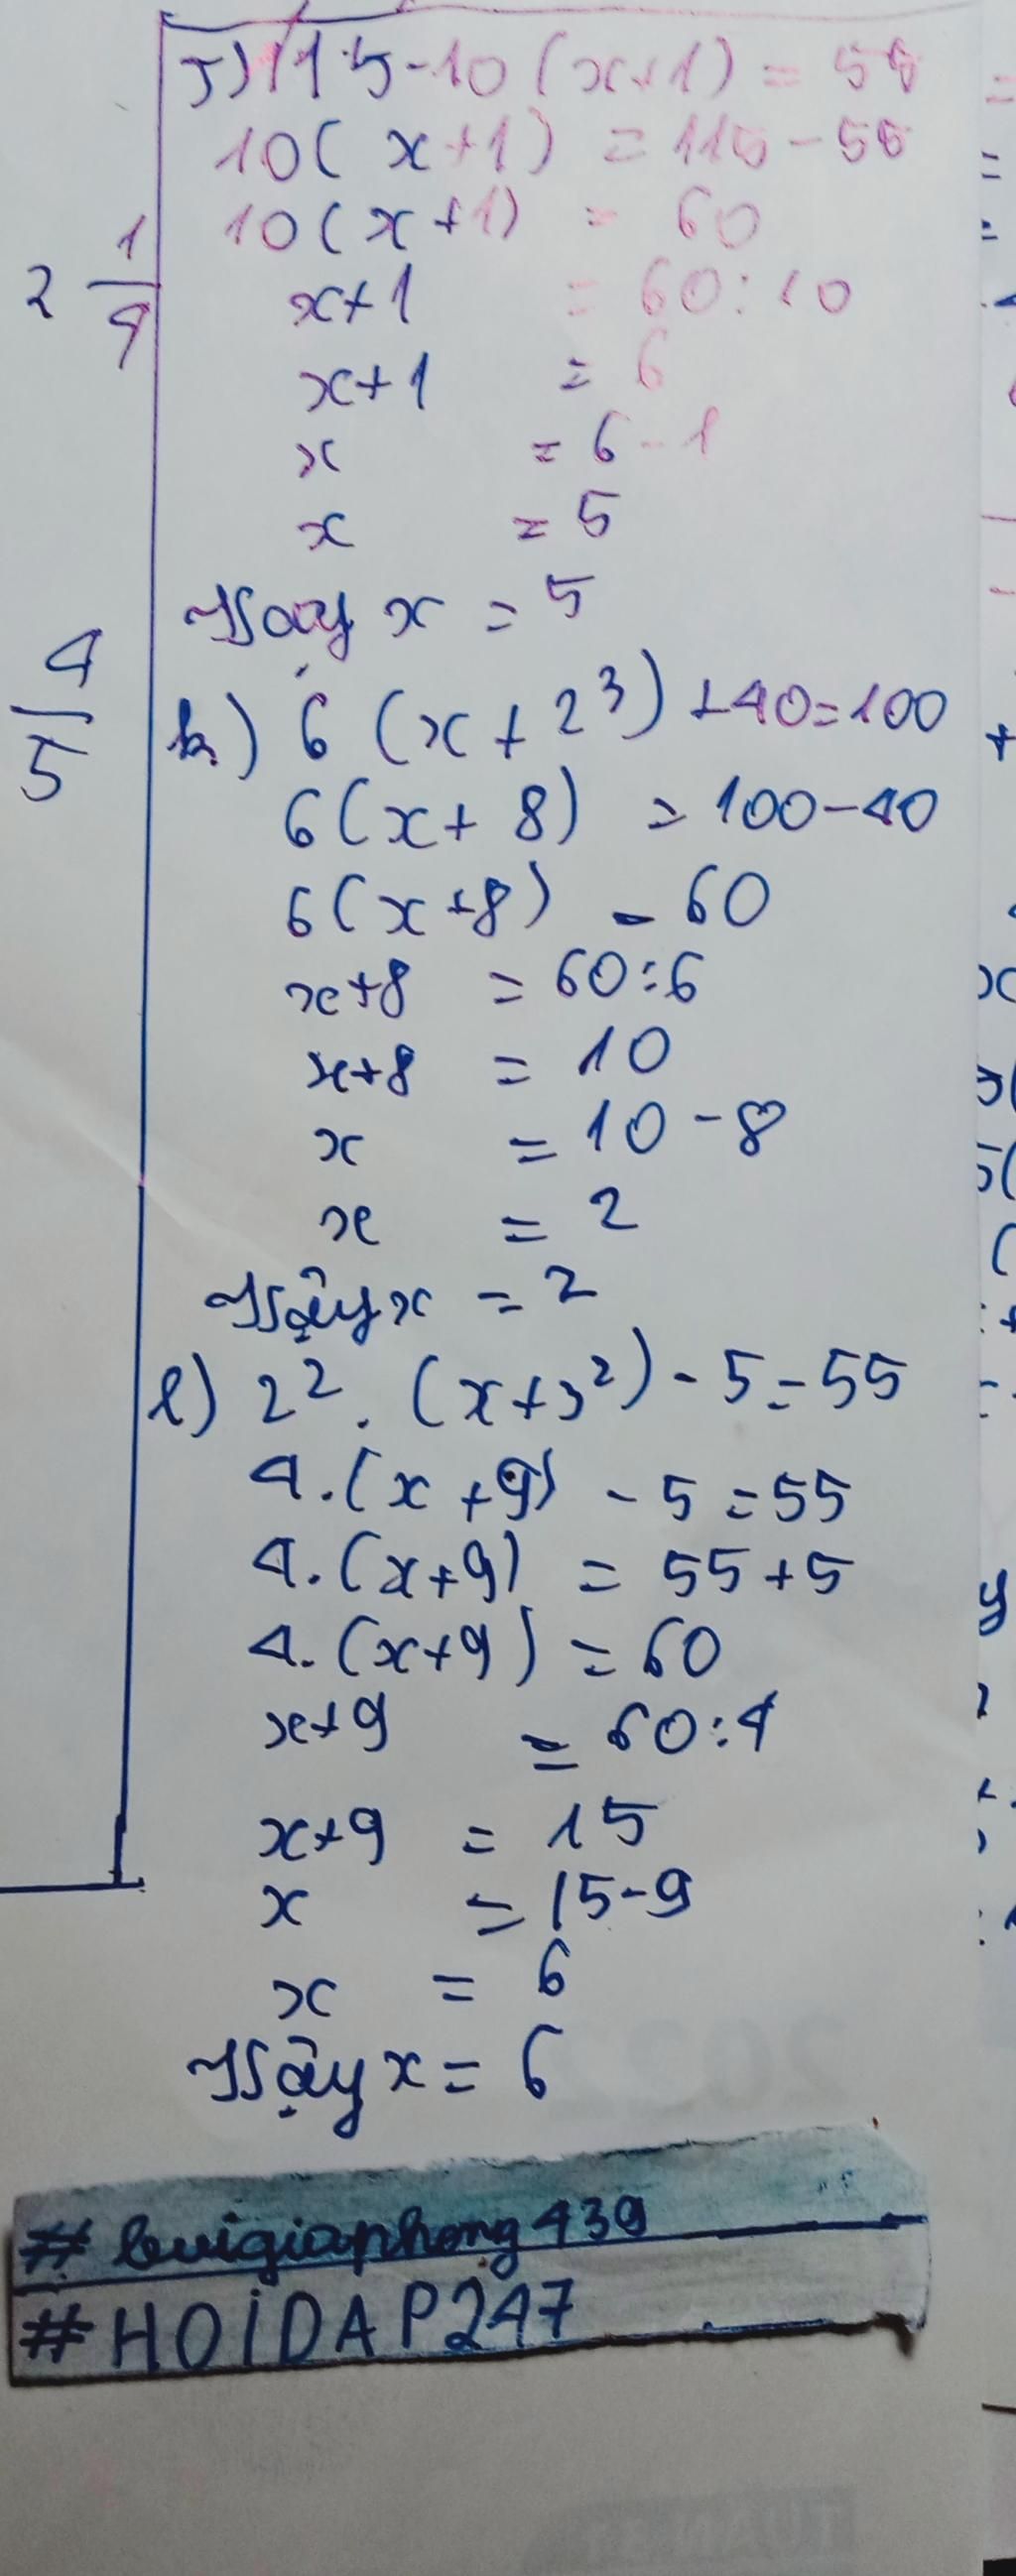 J) 115-10(x+1) = 55
10(x+1) = 115-55
10(x+1) = 60
x+1 = 60:10
x+1 = 6
x = 6-1
x = 5
Vậy x = 5
k) 6(x+2³)+40=100
6(x+8) = 100-40
6(x+8) = 60
x+8 = 60:6
x+8 = 10
x = 10-8
x = 2
Vậy x = 2
l) 2².(x+3²)-5=55
4.(x+9)-5=55
4.(x+9) = 55+5
4.(x+9) = 60
x+9 = 60:4
x+9 = 15
x = 15-9
x = 6
Vậy x = 6
2 1/4
4/5
# buigiaphong439
#HOIDAP247